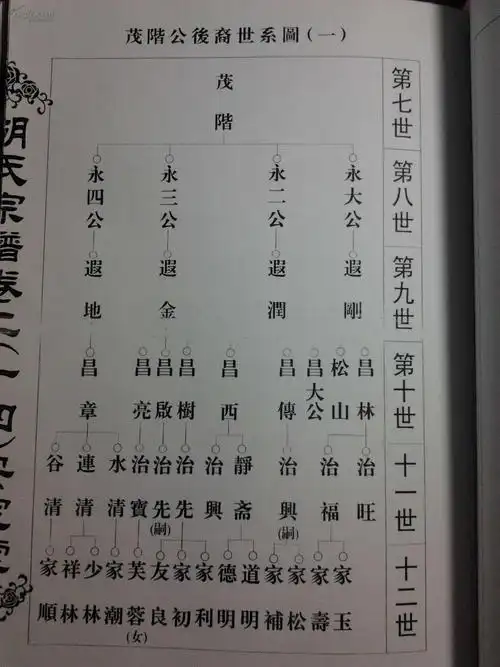 茂階公後裔世系圖(一)
第七世
茂階
第八世
永大公
永二公
永三公
永四公
第九世
遐剛
遐潤
遐金
遐地
第十世
昌林
松山
昌大公
昌傳
昌西
昌樹
昌啟
昌亮
昌章
十一世
治旺
治福
治興(嗣)
靜斋
治興
治先
治先(嗣)
治寶
水清
連清
谷清
十二世
家玉
家壽
家松
家補
道明
德明
家利
家初
友良
芙蓉(女)
家潮
少林
祥林
家順
胡氏宗譜卷二(一四)